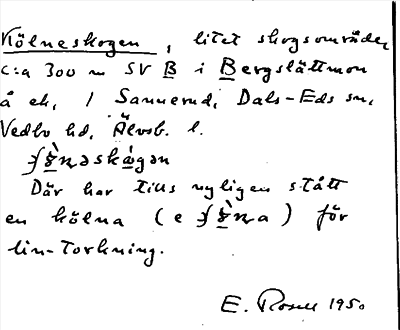 Kölneskogen, litet skogsområde,
c:a 300 m SV B i Bergslättmon
å ek. 1 Sannerud, Dals-Eds sn,
Vedbo hd, Älvsb. l.
Där har tills nyligen stått
en kölna (e ) för
lin-torkning.
E. Rosell 1950